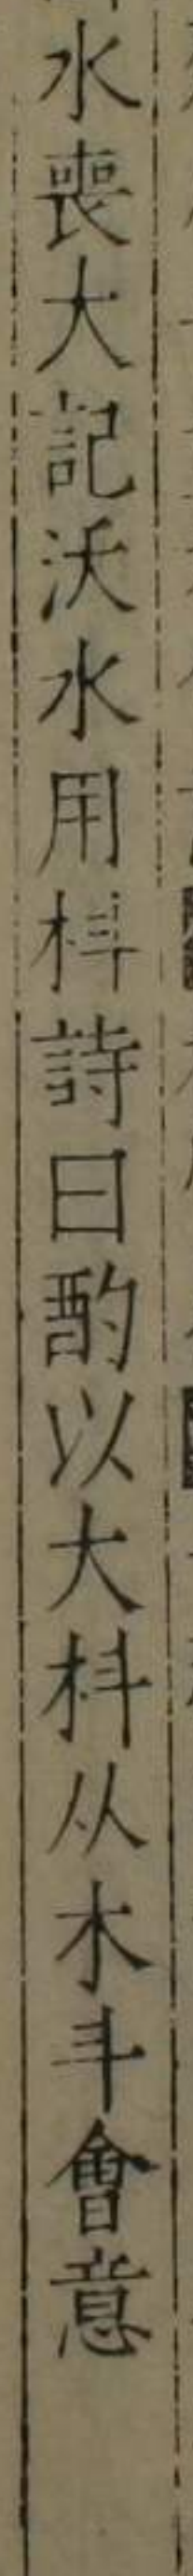 水喪大記沃水用枓詩曰酌以大枓从木斗會意